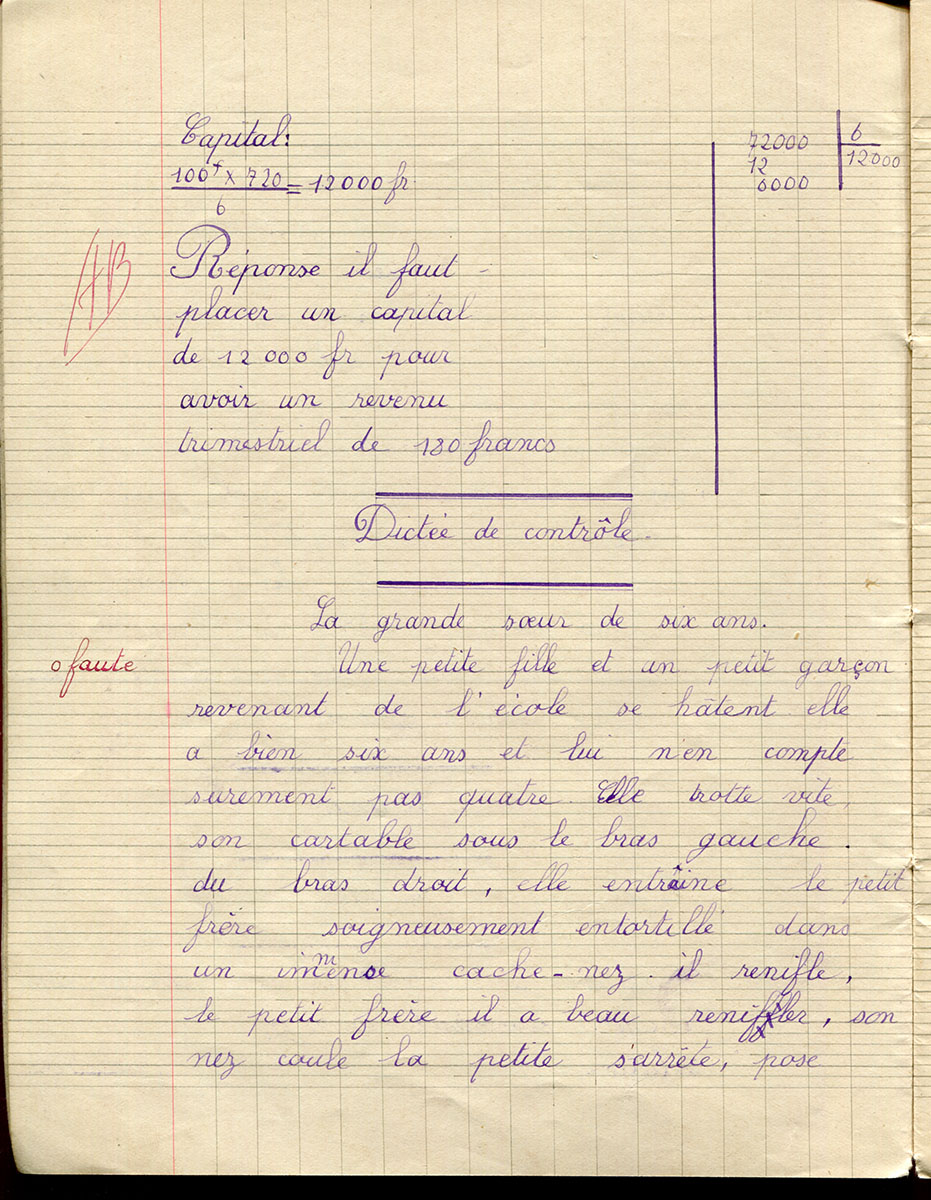 Capital:
100f x 720 = 12000 fr
6
72000 | 6
12 | 12000
0000
TB
Réponse il faut
placer un capital
de 12 000 fr pour
avoir un revenu
trimestriel de 180 francs
Dictée de contrôle.
La grande sœur de six ans.
0 faute
Une petite fille et un petit garçon
revenant de l'école se hâtent elle
a bien six ans et lui n'en compte
surement pas quatre. Elle trotte vite,
son cartable sous le bras gauche.
du bras droit, elle entraîne le petit
frère soigneusement entortillé dans
un immense cache-nez. il renifle,
le petit frère il a beau renifler, son
nez coule la petite s'arrête, pose